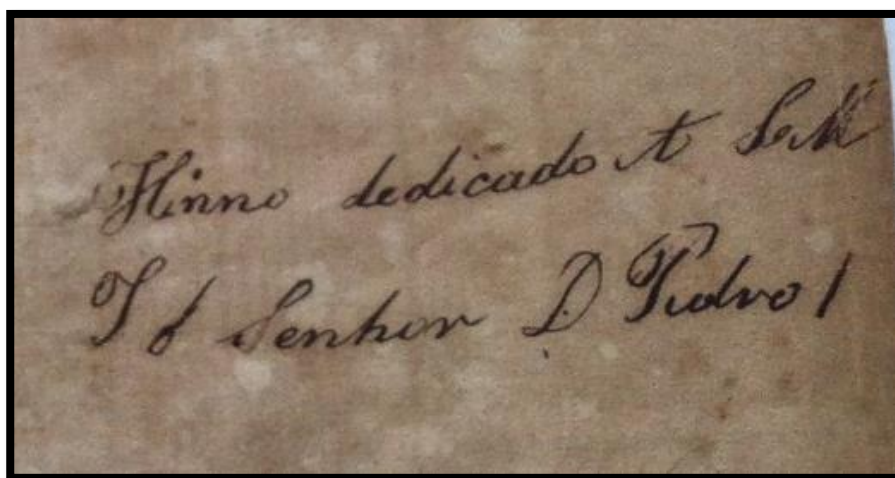 Hinno dedicado A S. M
I o Senhor D Pedro I